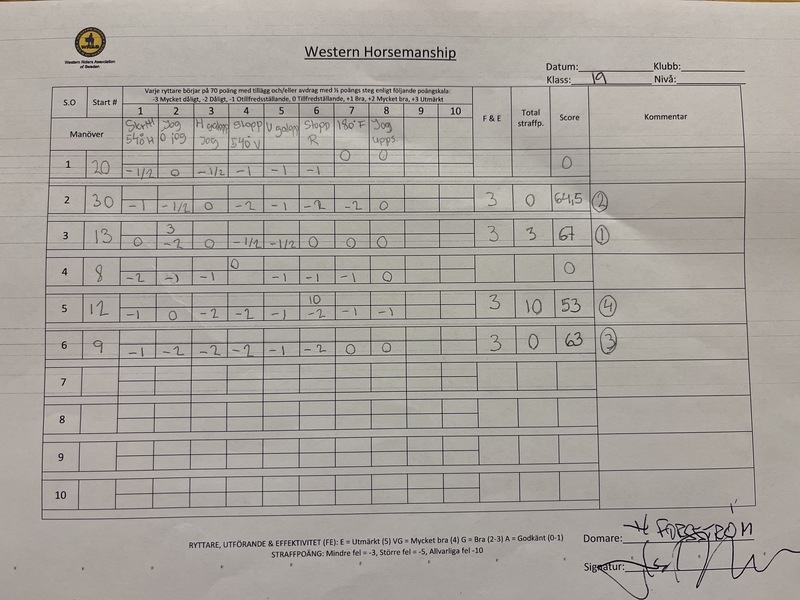 Western Riders Association
of Sweden
Western Horsemanship
Datum: Klubb:
Klass: 19 Nivå:
S.O Start # Varje ryttare börjar på 70 poäng med tillägg och/eller avdrag med ½ poängs steg enligt följande poängskala:
-3 Mycket dåligt, -2 Dåligt, -1 Otillfredsställande, 0 Tillfredsställande, +1 Bra, +2 Mycket bra, +3 Utmärkt
1 2 3 4 5 6 7 8 9 10 F & E Total straffp. Score Kommentar
Manöver Jog H galopp Stopp V galopp Stopp 180° F Jog
540 H 0 jog Jog 540 V R upps.
0 0
1 20 -1/2 0 -1/2 -1 -1 -1 0
2 30 -1 -1/2 0 -2 -1 -2 -2 0 3 0 64,5 2
3
3 13 0 -2 0 -1/2 -1/2 0 0 0 3 3 67 1
0
4 8 -2 -1 -1 -1 -1 0 0
10
5 12 -1 0 -2 -2 -1 -2 -1 -1 3 10 53 4
6 9 -1 -2 -2 -2 -1 -2 0 0 3 0 63 3
7
8
9
10
RYTTARE, UTFÖRANDE & EFFEKTIVITET (FE): E = Utmärkt (5) VG = Mycket bra (4) G = Bra (2-3) A = Godkänt (0-1)
STRAFFPOÄNG: Mindre fel = -3, Större fel = -5, Allvarliga fel -10
Domare: H FORSSTRÖM
Signatur: